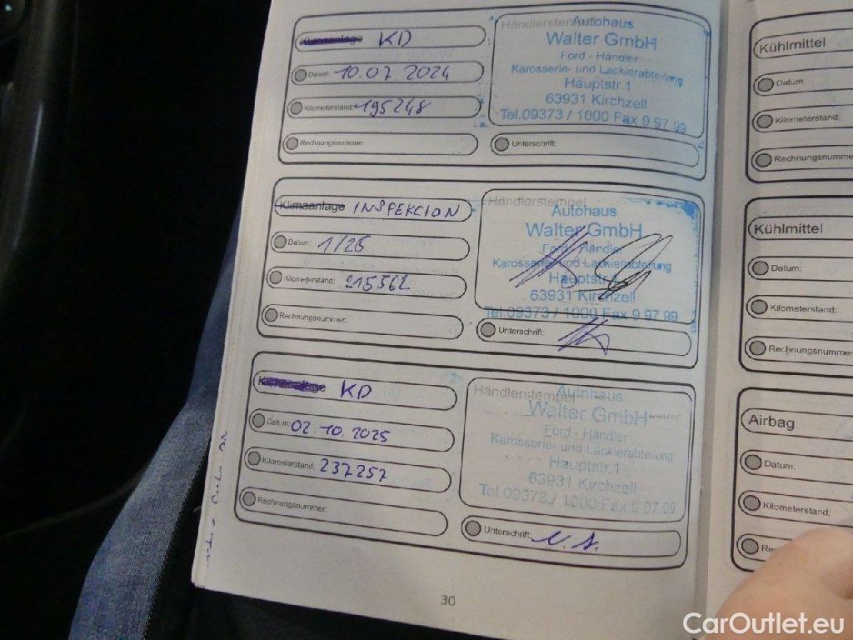 Klimaanlage KD
Datum: 10.07.2024
Kilometerstand: 195248
Rechnungsnummer:
Händlerstempel
Autohaus
Walter GmbH
Ford - Händler
Karosserie- und Lackierabteilung
Hauptstr.1
63931 Kirchzell
Tel.09373 / 1000 Fax 9 97 99
Unterschrift:
Klimaanlage INSPEKCION
Datum: 1/25
Kilometerstand: 215562
Rechnungsnummer:
Händlerstempel
Autohaus
Walter GmbH
Ford - Händler
Karosserie- und Lackierabteilung
Hauptstr.1
63931 Kirchzell
Tel.09373 / 1000 Fax 9 97 99
Unterschrift:
KD
Datum: 02.10.2025
Kilometerstand: 237257
Rechnungsnummer:
Händlerstempel
Autohaus
Walter GmbH
Ford - Händler
Karosserie- und Lackierabteilung
Hauptstr.1
63931 Kirchzell
Tel.09373 / 1000 Fax 9 97 99
Unterschrift:
30
Kühlmittel
Datum:
Kilometerstand:
Rechnungsnumme
Kühlmittel
Datum:
Kilometerstand:
Rechnungsnumme
Airbag
Datum:
Kilometerstand:
Re
CarOutlet.eu